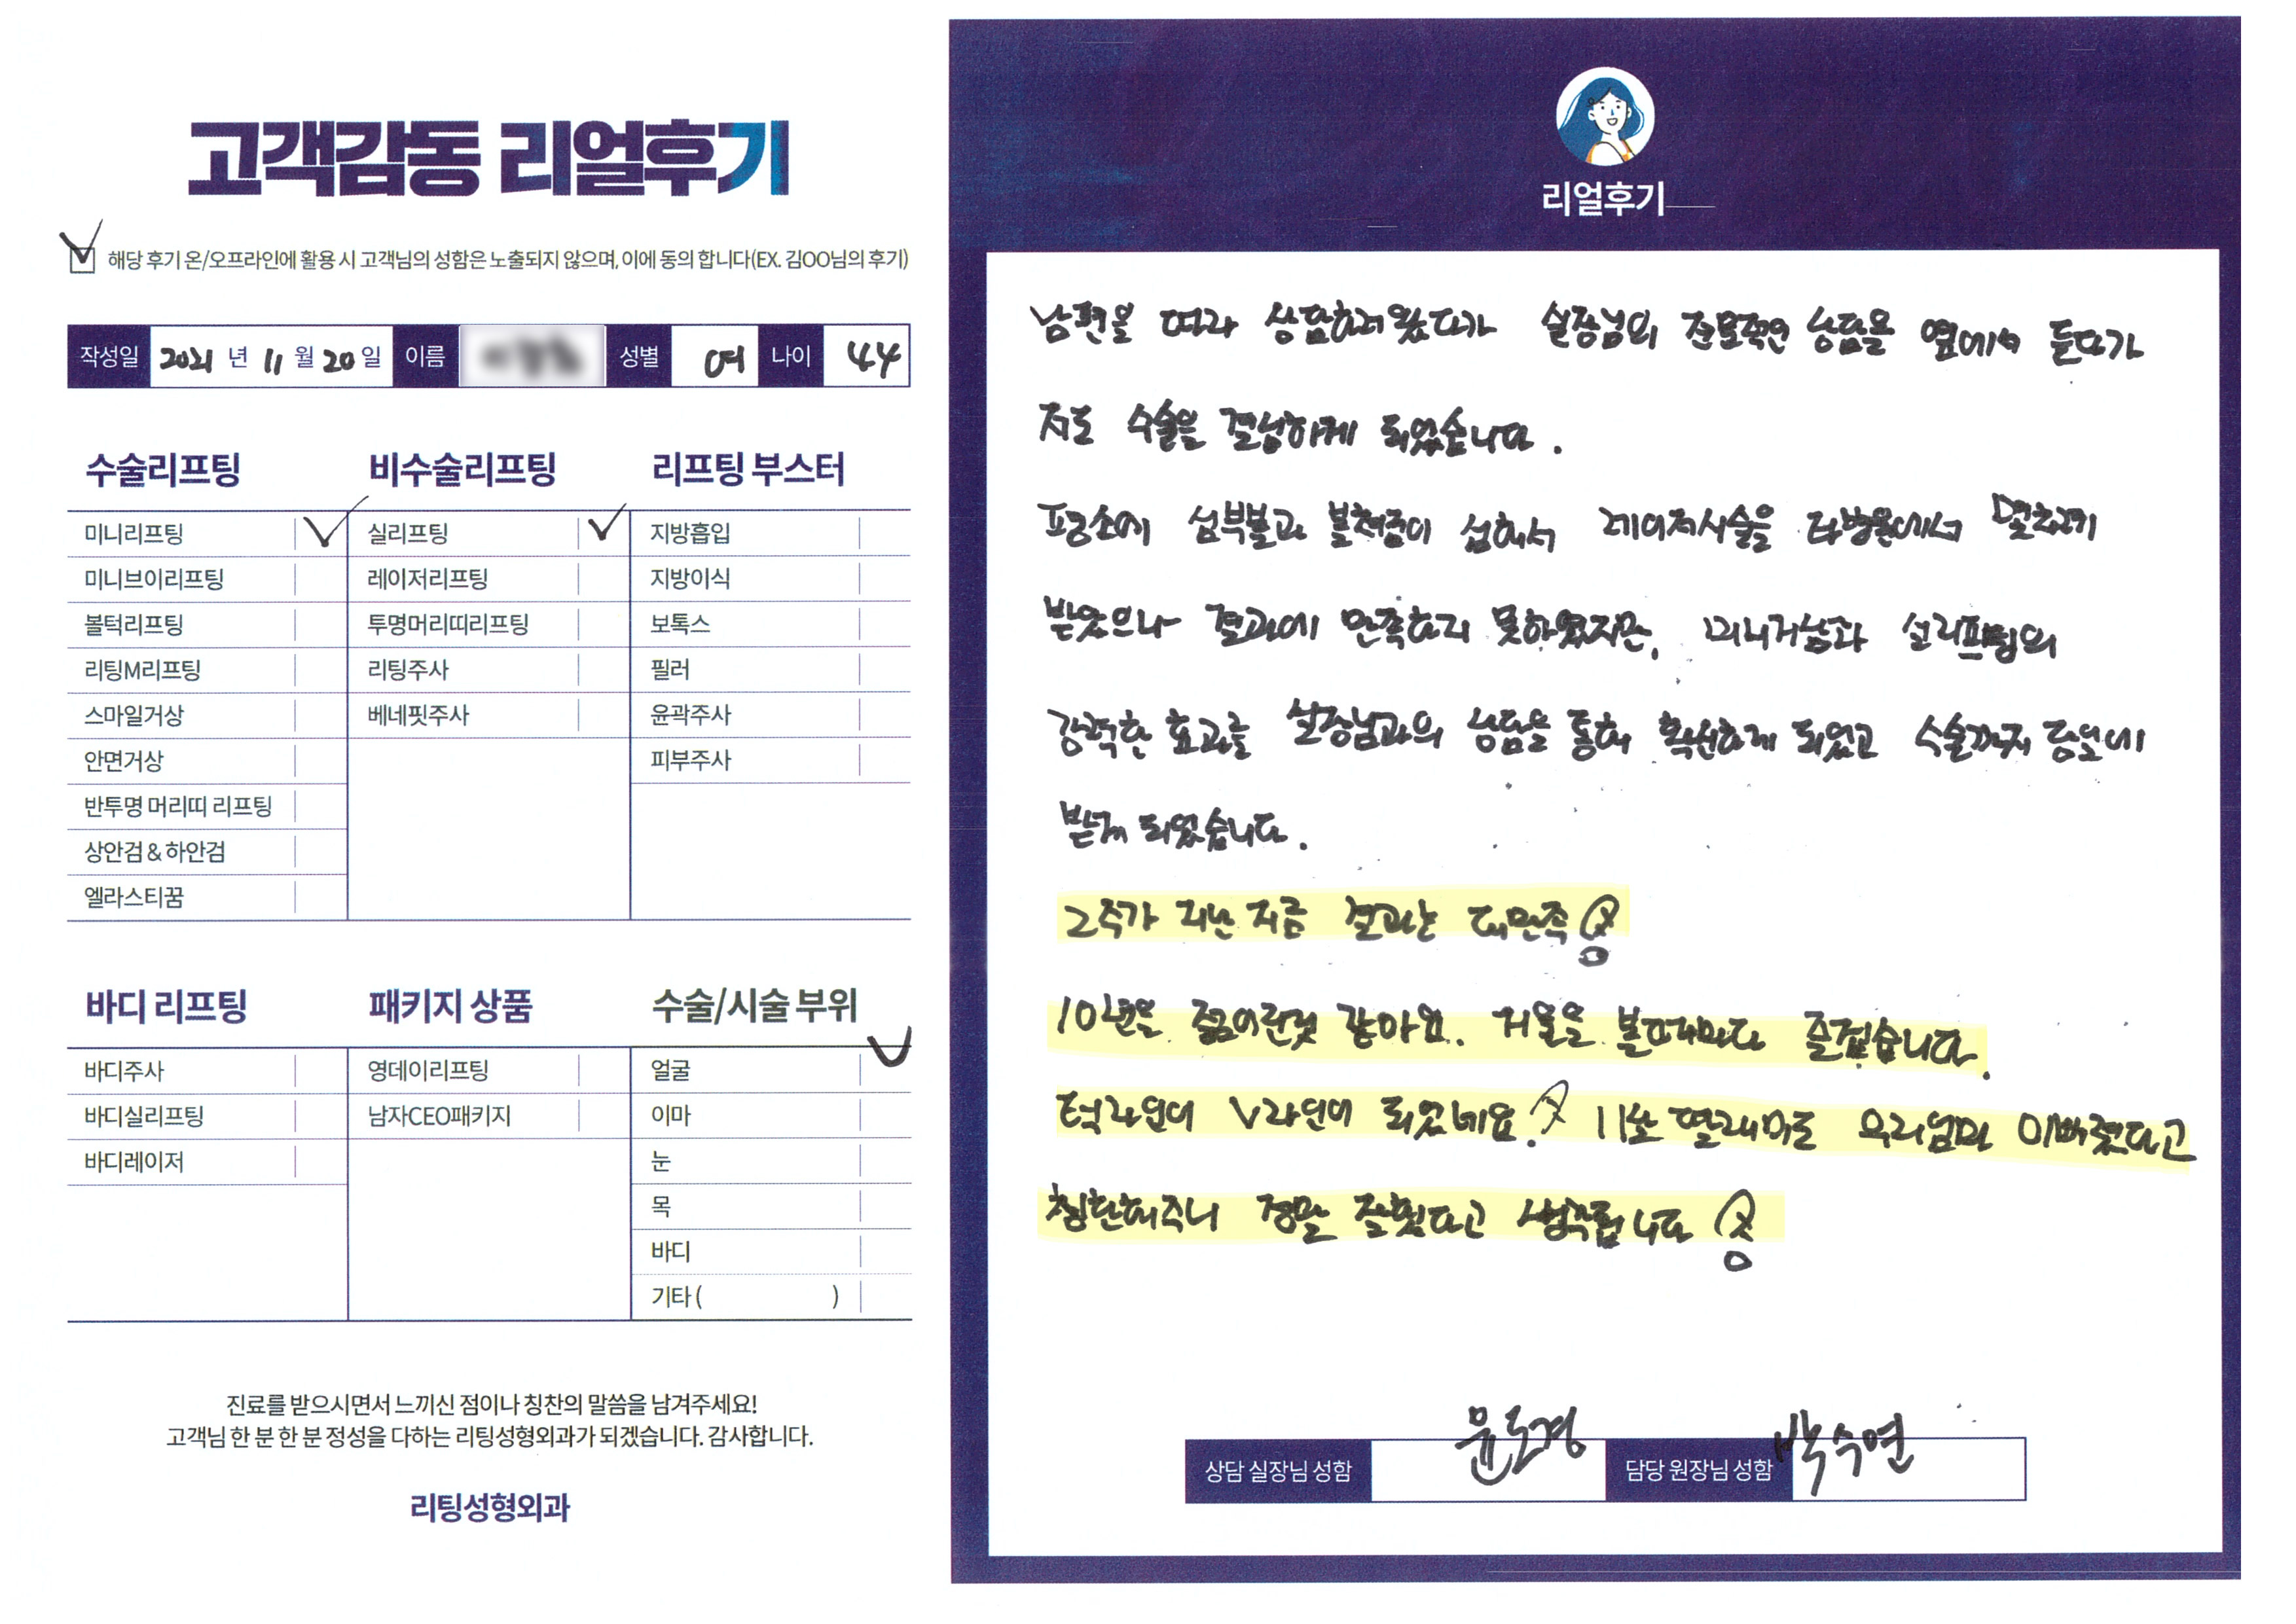 고객감동 리얼후기
해당 후기 온/오프라인에 활용 시 고객님의 성함은 노출되지 않으며, 이에 동의 합니다(EX. 김OO님의 후기)
작성일 2021 년 11 월 20 일 이름 성별 여 나이 44
수술리프팅
미니리프팅
미니브이리프팅
볼턱리프팅
리팅M리프팅
스마일거상
안면거상
반투명 머리띠 리프팅
상안검 & 하안검
엘라스티꿈
비수술리프팅
실리프팅
레이저리프팅
투명머리띠리프팅
리팅주사
베네핏주사
리프팅 부스터
지방흡입
지방이식
보톡스
필러
윤곽주사
피부주사
바디 리프팅
바디주사
바디실리프팅
바디레이저
패키지 상품
영데이리프팅
남자CEO패키지
수술/시술 부위
얼굴
이마
눈
목
바디
기타 ( )
진료를 받으시면서 느끼신 점이나 칭찬의 말씀을 남겨주세요!
고객님 한 분 한 분 정성을 다하는 리팅성형외과가 되겠습니다. 감사합니다.
리팅성형외과
리얼후기
남편을 따라 상담하러왔다가 실장님의 전문적인 상담을 옆에서 듣다가
저도 수술을 결심하게 되었습니다.
평소에 심부볼과 볼처짐이 심해서 레이저시술을 타병원에서 몇차례
받았으나 결과에 만족하지 못하였지만, 미니거상과 실리프팅의
강력한 효과를 실장님과의 상담을 통해 확신하게 되었고 수술까지 당일에
받게 되었습니다.
2주가 지난 지금 결과는 대만족
10년은 젊어진것 같아요. 거울을 볼때마다 즐겁습니다.
턱라인이 V라인이 되었네요? 11살 딸래미도 우리엄마 이뻐졌다고
칭찬해주니 정말 잘했다고 생각됩니다
상담 실장님 성함 윤도경 담당 원장님 성함 박수연